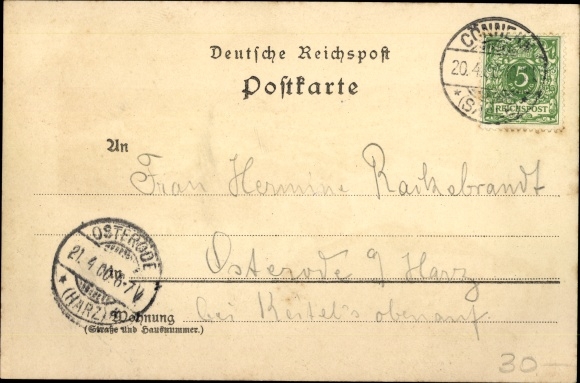 Deutsche Reichspost
Postkarte
CÖNNERN
20.4.
(S
5
REICHSPOST
An
Frau Hermine
OSTERODE
21.4.00.6-7V
* (HARZ) *
Osterode a/ Harz
in
bei Keitel's obenauf
Wohnung
(Straße und Hausnummer.)
30—